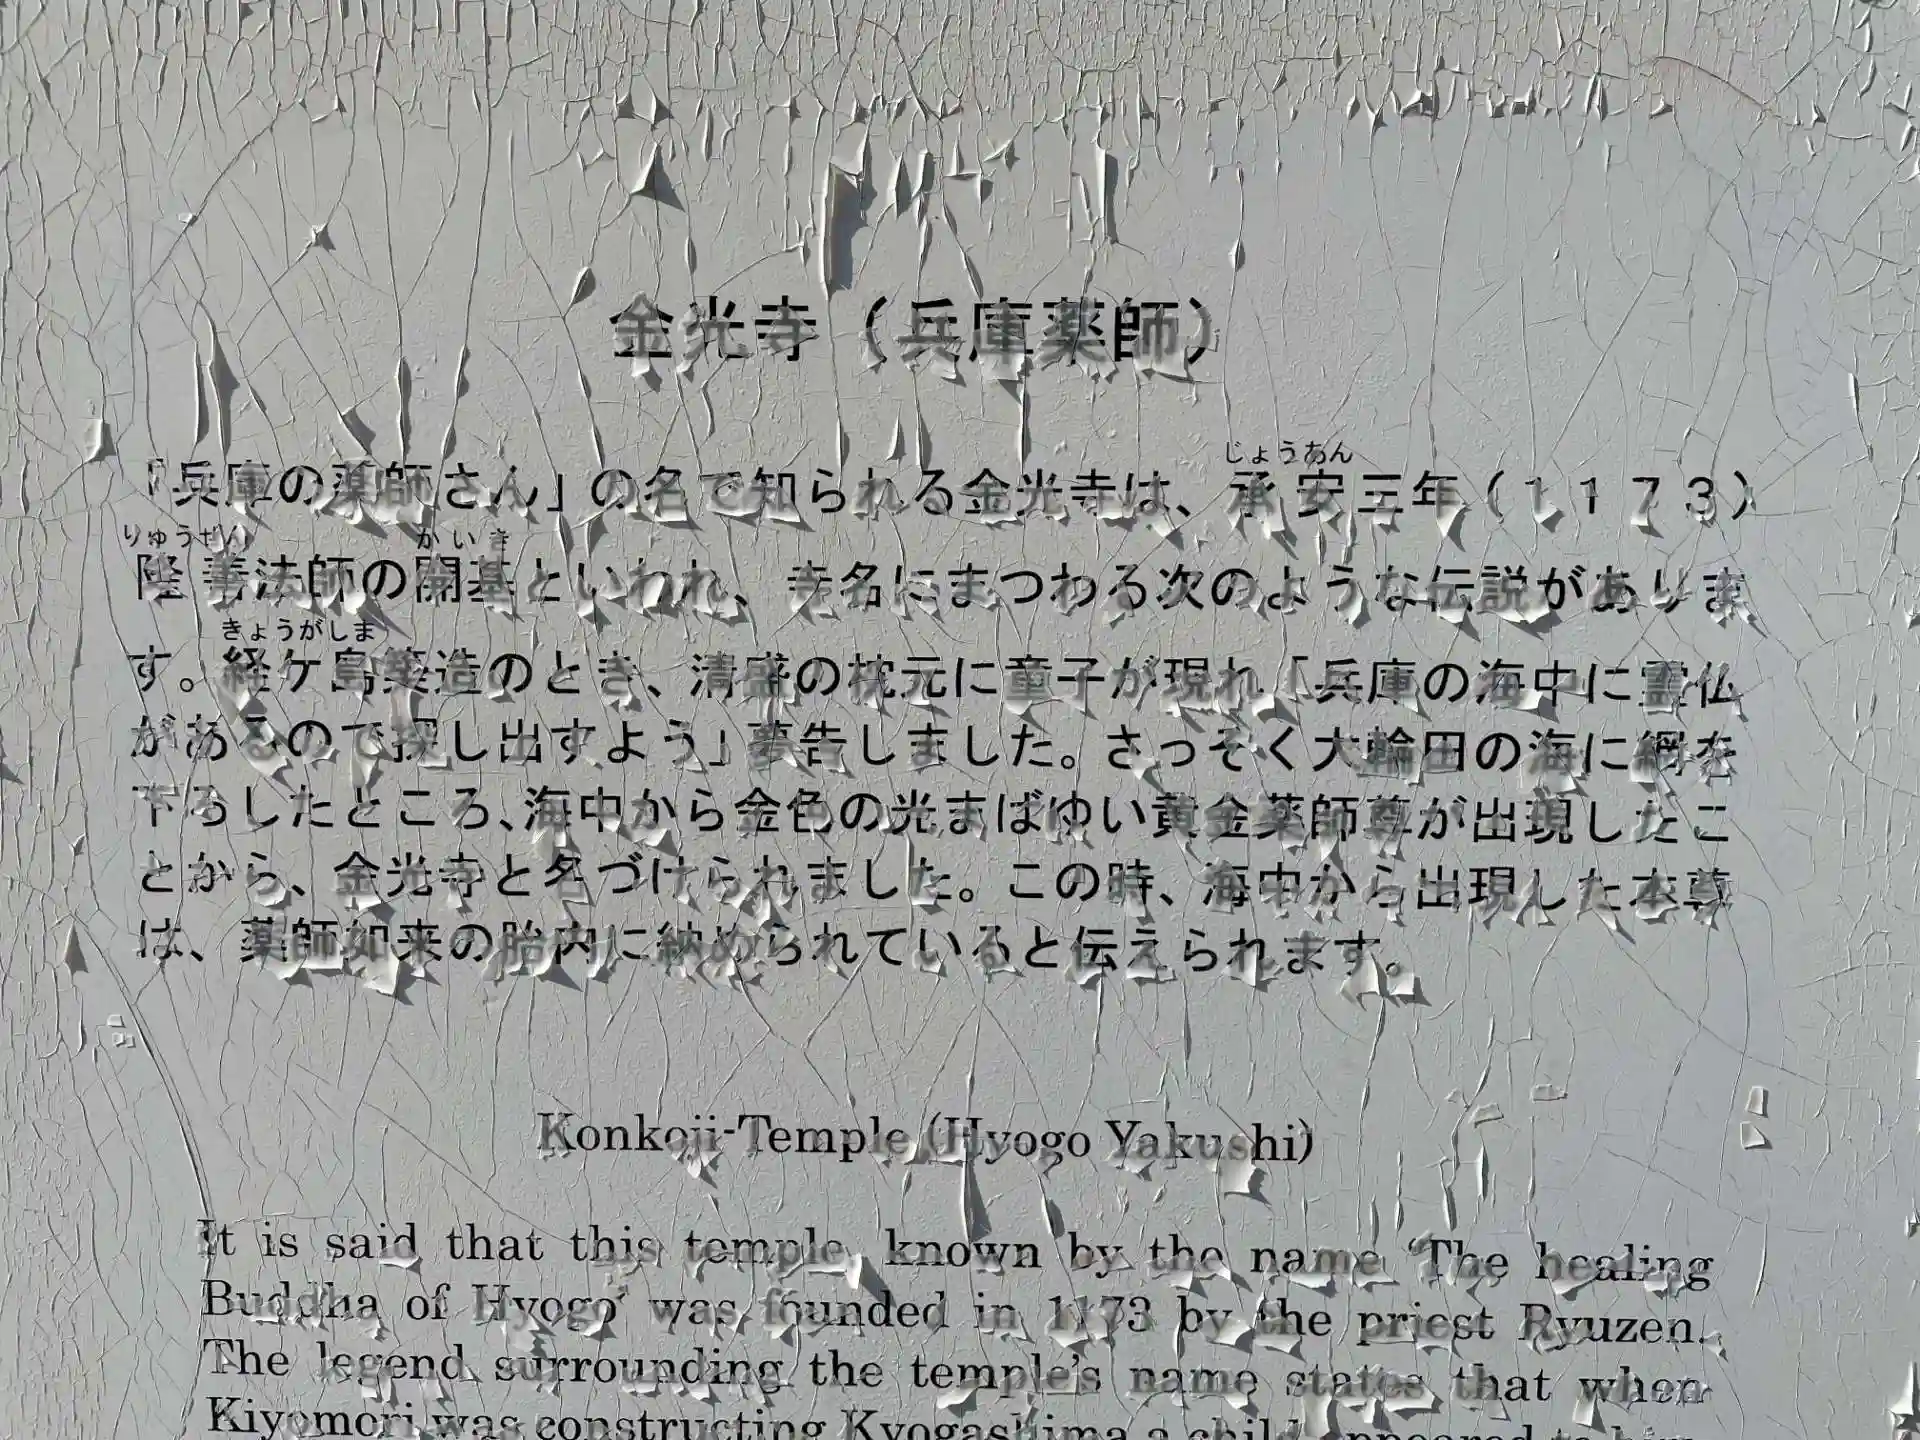 金光寺（兵庫薬師）
じょうあん
「兵庫の薬師さん」の名で知られる金光寺は、承安三年（１１７３）
りゅうぜん　かいき
隆善法師の開基といわれ、寺名にまつわる次のような伝説がありま
きょうがしま
す。経ケ島築造のとき、清盛の枕元に童子が現れ「兵庫の海中に霊仏
があるので探し出すよう」夢告しました。さっそく大輪田の海に網を
下ろしたところ、海中から金色の光まばゆい黄金薬師尊が出現したこ
とから、金光寺と名づけられました。この時、海中から出現した本尊
は、薬師如来の胎内に納められていると伝えられます。
Konkoji-Temple (Hyogo Yakushi)
It is said that this temple, known by the name ‘The healing
Buddha of Hyogo’ was founded in 1173 by the priest Ryuzen.
The legend surrounding the temple’s name states that when
Kiyomori was constructing Kyogashima a child appeared to him